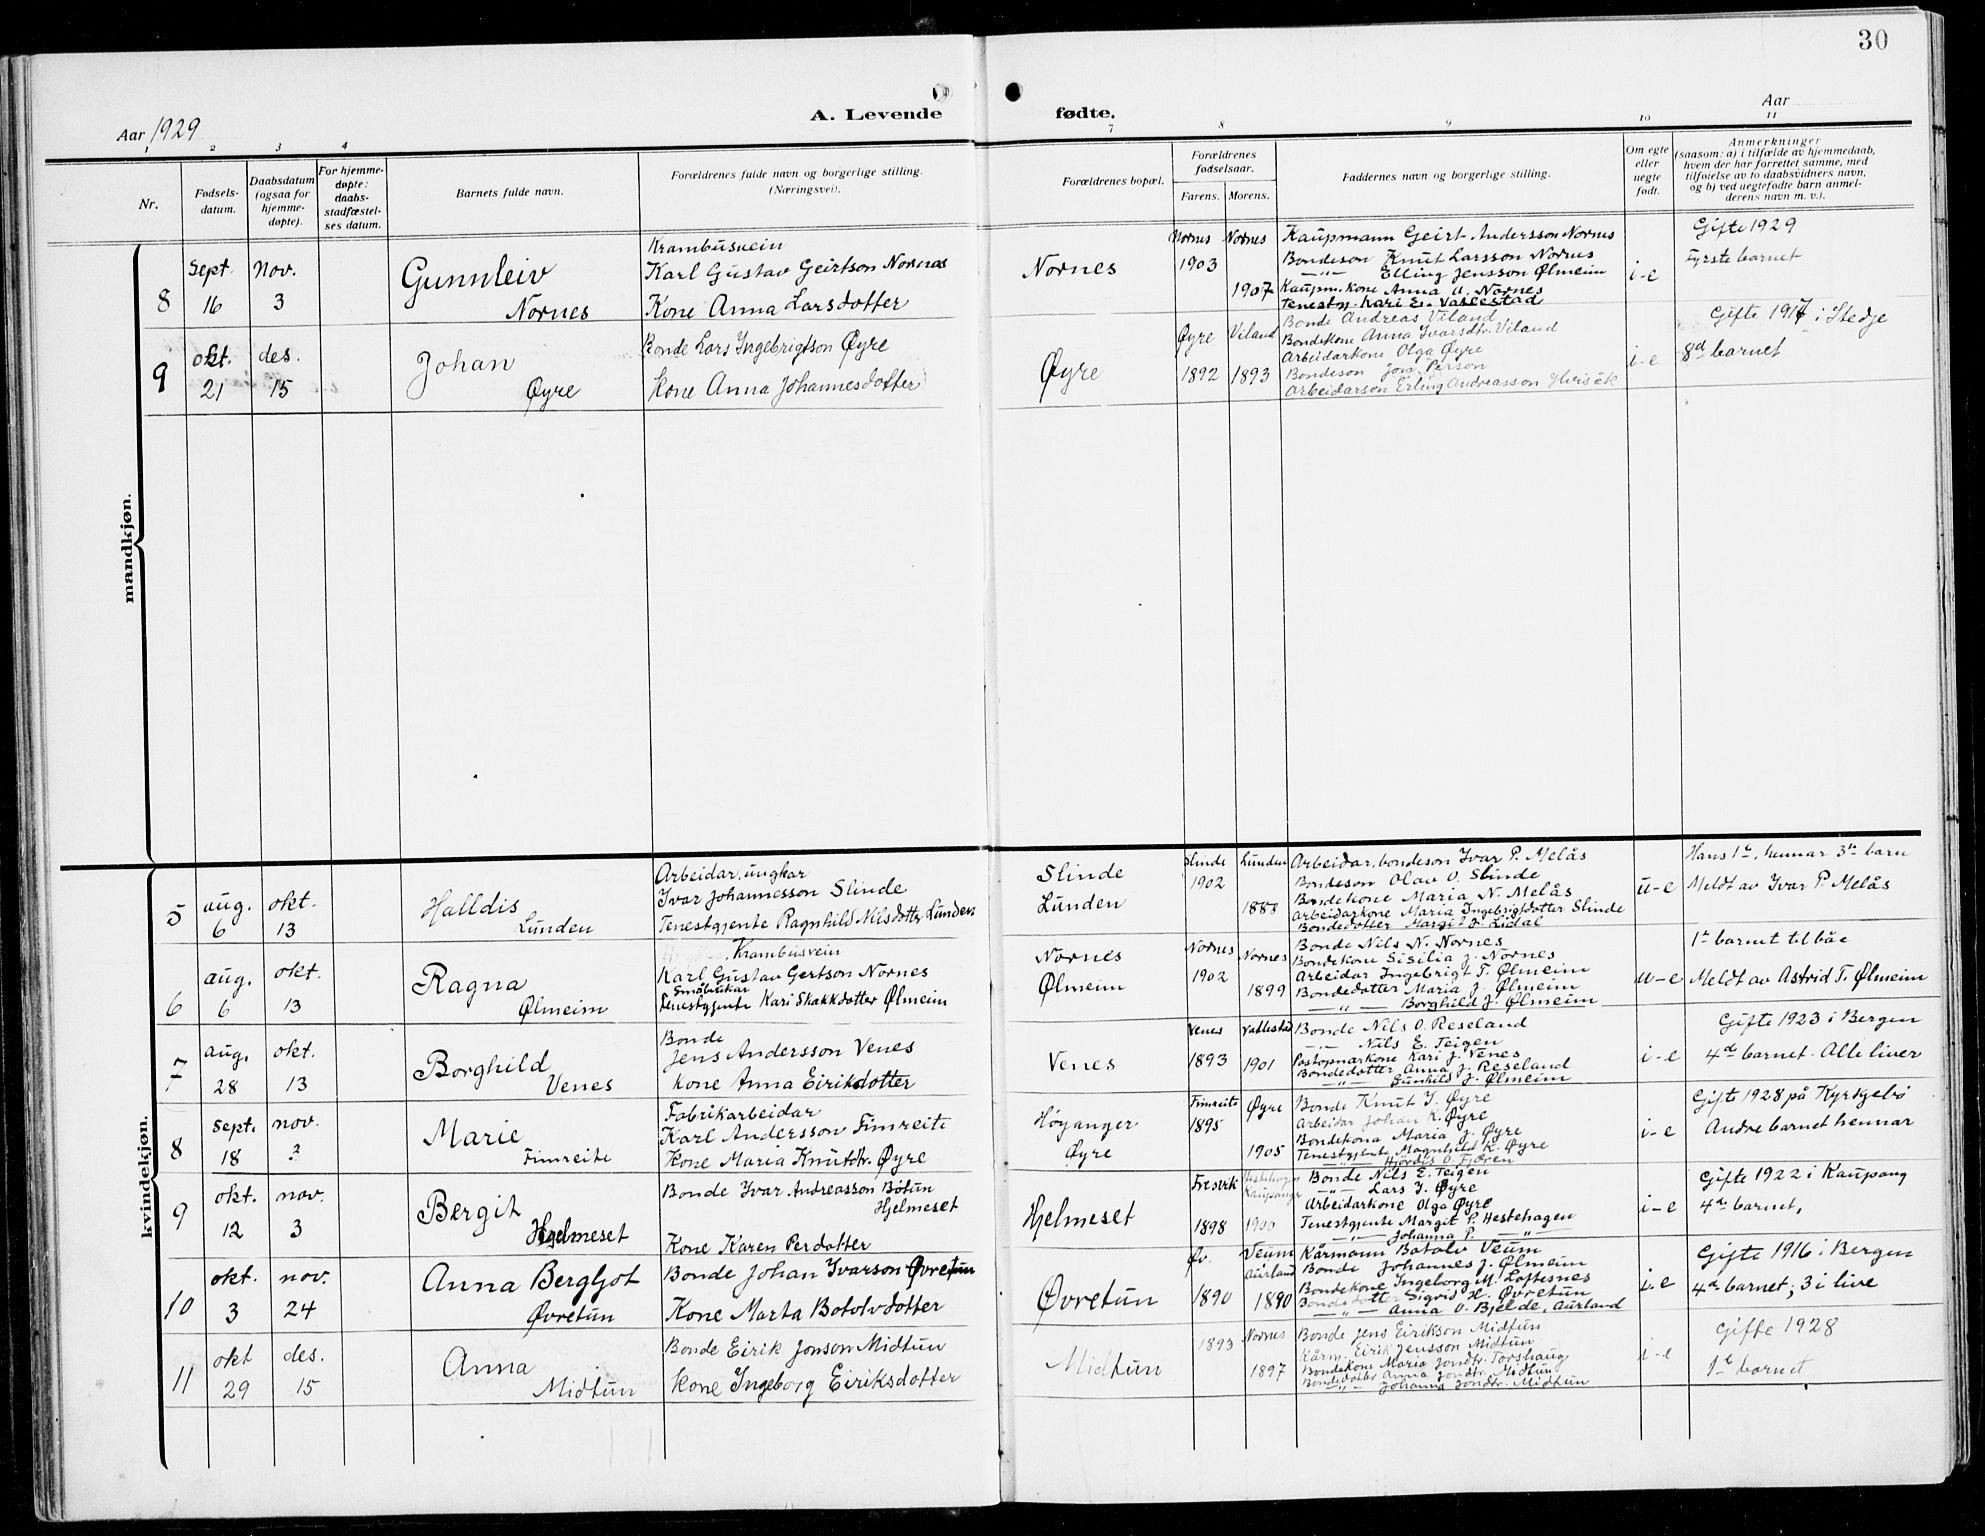 30
A. Levende fødte.
Aar 1929
Aar
1 2 3 4 7 8 9 10 11
Nr.
Fødsels-
datum.
Daabsdatum
(ogsaa for
hjemme-
døpte).
For hjemme-
døpte:
daabs-
stadfæstel-
ses datum.
Barnets fulde navn.
Forældrenes fulde navn og borgerlige stilling.
(Næringsvei).
Forældrenes bopæl.
Forældrenes
fødselsaar.
Farens. Morens.
Faddernes navn og borgerlige stilling.
Om egte
eller
uegte
født.
Anmerkninger
(saasom: a) i tilfælde av hjemmedaab,
hvem der har forrettet samme, med
tilføielse av to daabsvidners navn,
og b) ved uegtefødte barn anmel-
derens navn m. v.).
mandkjøn.
8
Sept. 16
Nov. 3
Gunnleiv
Nornes
Krambusvein
Karl Gustav Geirtson Nornes
Kone Anna Larsdotter
Nornes
Nornes 1903
Nornes 1907
Kaupmann Geirt Andersson Nornes
Bondeson Knut Larsson Nornes
—"— Elling Jensson Ølmeim
Kaupm. kone Anna O. Nornes
Tenestgj. Kari E. Vallestad
i-e
Gifte 1929
Fyrste barnet
9
okt. 21
des. 15
Johan
Øyre
Bonde Lars Ingebrigtson Øyre
Kone Anna Johannesdotter
Øyre
Øyre 1892
Viland 1893
Bonde Andreas Viland
Bondekone Anna Ivarsdtr. Viland
Arbeidarkone Olga Øyre
Bondeson Jon Person
Arbeidarson Erling Andreasson
i-e
Gifte 1917 i Stedje
8d barnet
kvindekjøn.
5
aug. 6
okt. 13
Halldis
Lunden
Arbeidar, ungkar
Ivar Johannesson Slinde
Tenestgjente Ragnhild Nilsdotter Lunden
Slinde
Lunden
Slinde 1902
Lunden 1888
Arbeidar, bondeson Ivar P. Melås
Bondeson Olav O. Slinde
Bondekone Maria N. Melås
Arbeidarkone Maria Ingebrigtdotter Slinde
Bondedotter Margit J. Lidal
u-e
Hans 1te, hennar 3de barn
Meldt av Ivar P. Melås
6
aug. 6
okt. 13
Ragna
Ølmeim
Krambusvein
Karl Gustav Gertson Nornes
Småbrukar
Tenestgjente Kari Skakkdotter Ølmeim
Nornes
Ølmeim
Nornes 1902
Nornes 1899
Bonde Nils N. Nornes
Bondekone Sisilia J. Nornes
Arbeidar Ingebrigt T. Ølmeim
Bondedotter Maria J. Ølmeim
—"— Borghild J. Ølmeim
u-e
1te barnet til båe
Meldt av Astrid T. Ølmeim
7
aug. 28
okt. 13
Borghild
Venes
Bonde
Jens Andersson Venes
Kone Anna Eiriksdotter
Venes
Venes 1893
Vallestad 1901
Bonde Nils O. Reseland
—"— Nils E. Teigen
Postopnarkone Kari J. Venes
Bondedotter Anna J. Reseland
—"— Gunhild J. Ølmeim
i-e
Gifte 1923 i Bergen
4de barnet. Alle liver
8
sept. 18
nov. 3
Marie
Fimreite
Fabrikarbeidar
Karl Andersson Fimreite
Kone Maria Knutdtr. Øyre
Høyanger
Øyre
Fimreite 1895
Øyre 1905
Bonde Knut J. Øyre
Arbeidar Johan K. Øyre
Bondekona Maria J. Øyre
Tenestgjente Magnhild K. Øyre
—"— Hjördis O. Fjæren
i-e
Gifte 1928 på Kyrkjebø
Andre barnet hennar
9
okt. 12
nov. 3
Bergit
Hjelmeset
Bonde Ivar Andreasson Bøtun
Hjelmeset
Kone Karen Perdotter
Hjelmeset
Fresvik 1898
Hestehagen
Kaupanger
1900
Bonde Nils E. Teigen
—"— Lars J. Øyre
Arbeidarkone Olga Øyre
Tenestgjente Margit P. Hestehagen
—"— Johanna P. —"—
i-e
Gifte 1922 i Kaupang
4de barnet,
10
okt. 3
nov. 24
Anna Bergljot
Øvretun
Bonde Johan Ivarson Øvretun
Kone Marta Botolvdotter
Øvretun
Øv. 1890
Veum
Aurland
1890
Kårmann Botolv Veum
Bonde Johannes J. Ølmeim
Bondekone Ingeborg M. Loftesnes
Bondedotter Sigrid H. Øvretun
—"— Anna O. Bjelde, Aurland
i-e
Gifte 1916 i Bergen
4de barnet; 3 i live
11
okt 29
des. 15
Anna
Midtun
Bonde Eirik Jonson Midtun
Kone Ingeborg Eiriksdotter
Midtun
1893
Nornes 1897
Bonde Jens Eirikson Midtun
Kårm. Eirik Jensson Midtun
Bondekone Maria Jondtr. Torshaug
Bondedotter Anna Jondtr. Midtun
—"— Johanna Jondtr. Midtun
i-e
Gifte 1928
1te barnet